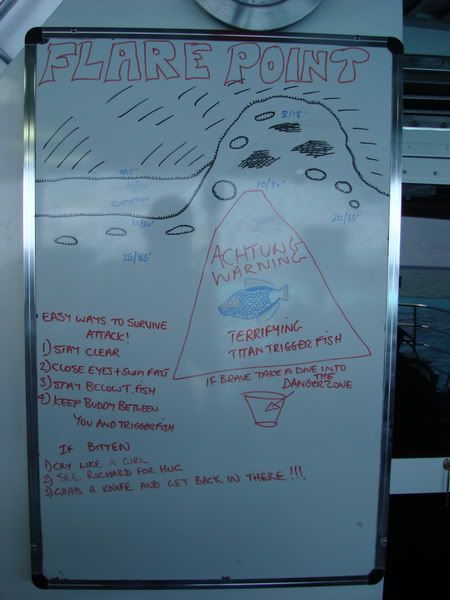 FLARE POINT
5/15'
10/20'
20/
25/85'
ACHTUNG
WARNING
TERRIFYING
TITAN TRIGGER FISH
IF BRAVE TAKE A DIVE INTO
THE
DANGERZONE
EASY WAYS TO SURVIVE
ATTACK!
1) STAY CLEAR
2) CLOSE EYES + SWIM FAST
3) STAY BELOW T. FISH
4) KEEP BUDDY BETWEEN
YOU AND TRIGGERFISH
IF BITTEN
1) CRY LIKE A GIRL
2) SEE RICHARD FOR HUG
3) GRAB A KNIFE AND GET BACK IN THERE !!!